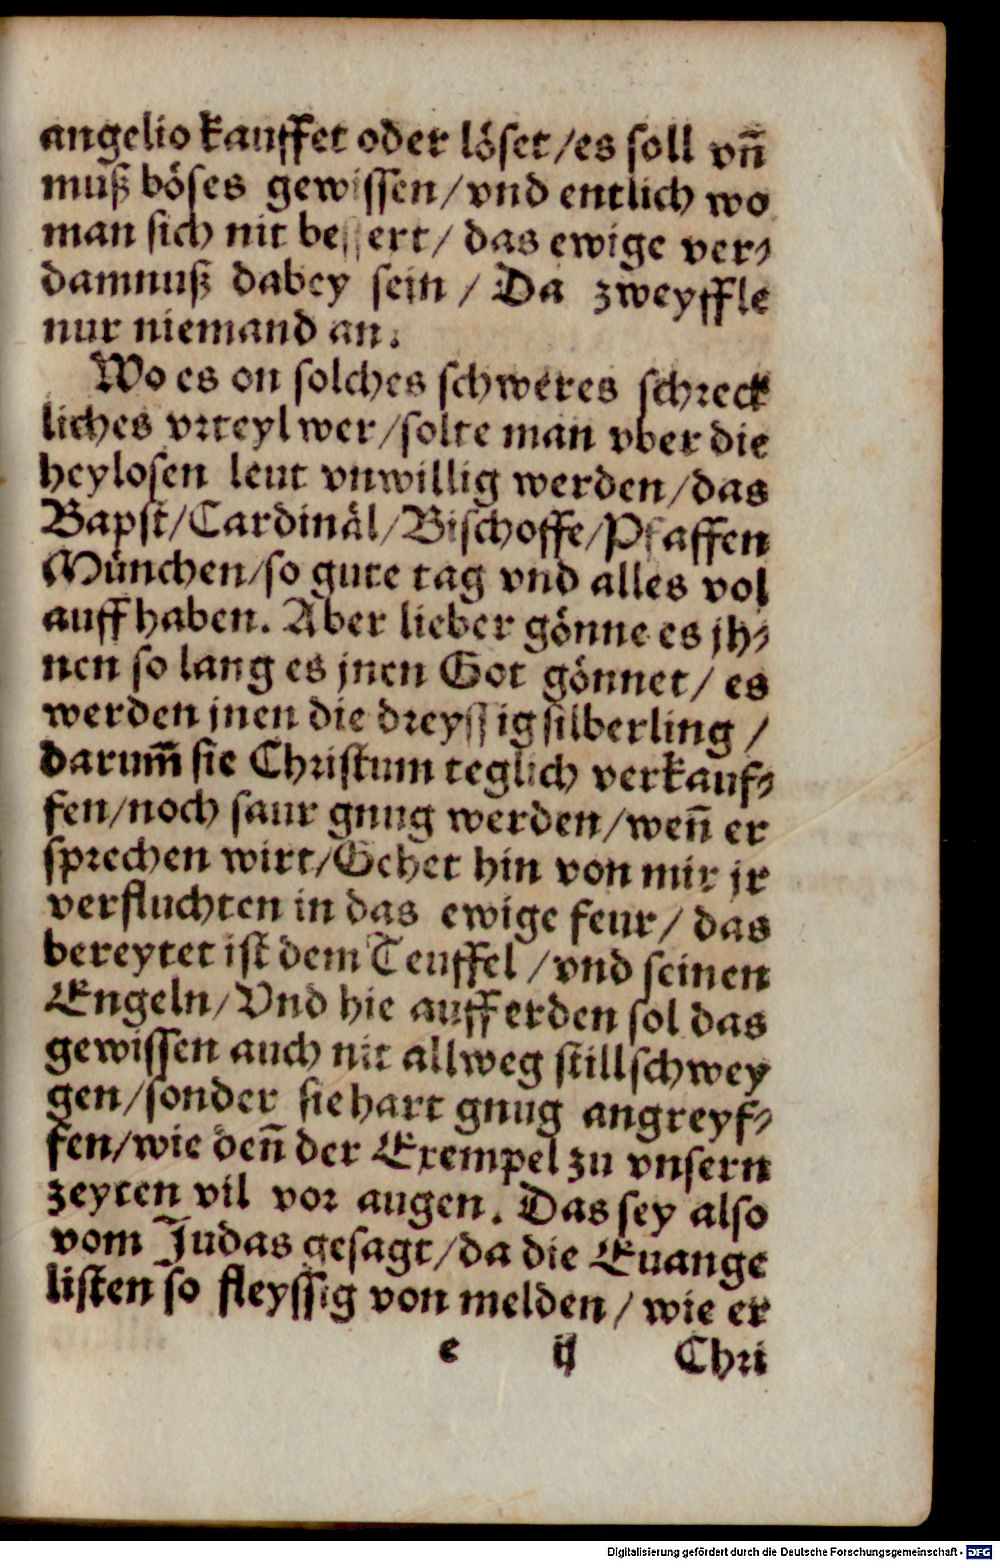 angelio kauffet oder löset/es soll vn̄
muß böses gewissen/vnd entlich wo
man sich nit bessert/ das ewige ver⸗
damnuß dabey sein / Da zweyffle
nur niemand an.
Wo es on solches schweres schreck
liches vrteyl wer/solte man vber die
heylosen leut vnwillig werden/das
Bapst/Cardinäl/Bischoffe/Pfaffen
München/so gute tag vnd alles vol
auff haben. Aber lieber gönne es jh⸗
nen so lang es jnen Got gönnet/ es
werden jnen die dreyssig silberling /
darum̄ sie Christum teglich verkauf⸗
fen/noch saur gnug werden/wen̄ er
sprechen wirt/Gehet hin von mir jr
verfluchten in das ewige feur/ das
bereytet ist dem Teuffel /vnd seinen
Engeln/Vnd hie auff erden sol das
gewissen auch nit allweg stillschwey
gen/sonder sie hart gnug angreyf⸗
fen/wie den̄ der Exempel zu vnsern
zeyten vil vor augen. Das sey also
vom Judas gesagt/da die Euange
listen so fleyssig von melden/ wie er
e ij Chri
Digitalisierung gefördert durch die Deutsche Forschungsgemeinschaft - DFG